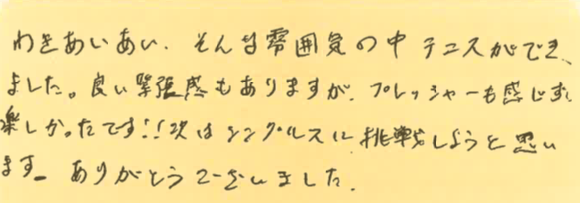 わきあいあい、そんな雰囲気の中テニスができ、
ました。良い緊張感もありますが、プレッシャーも感じず、
楽しかったです!!次はシングルスに挑戦しようと思い
ます。ありがとうございました。